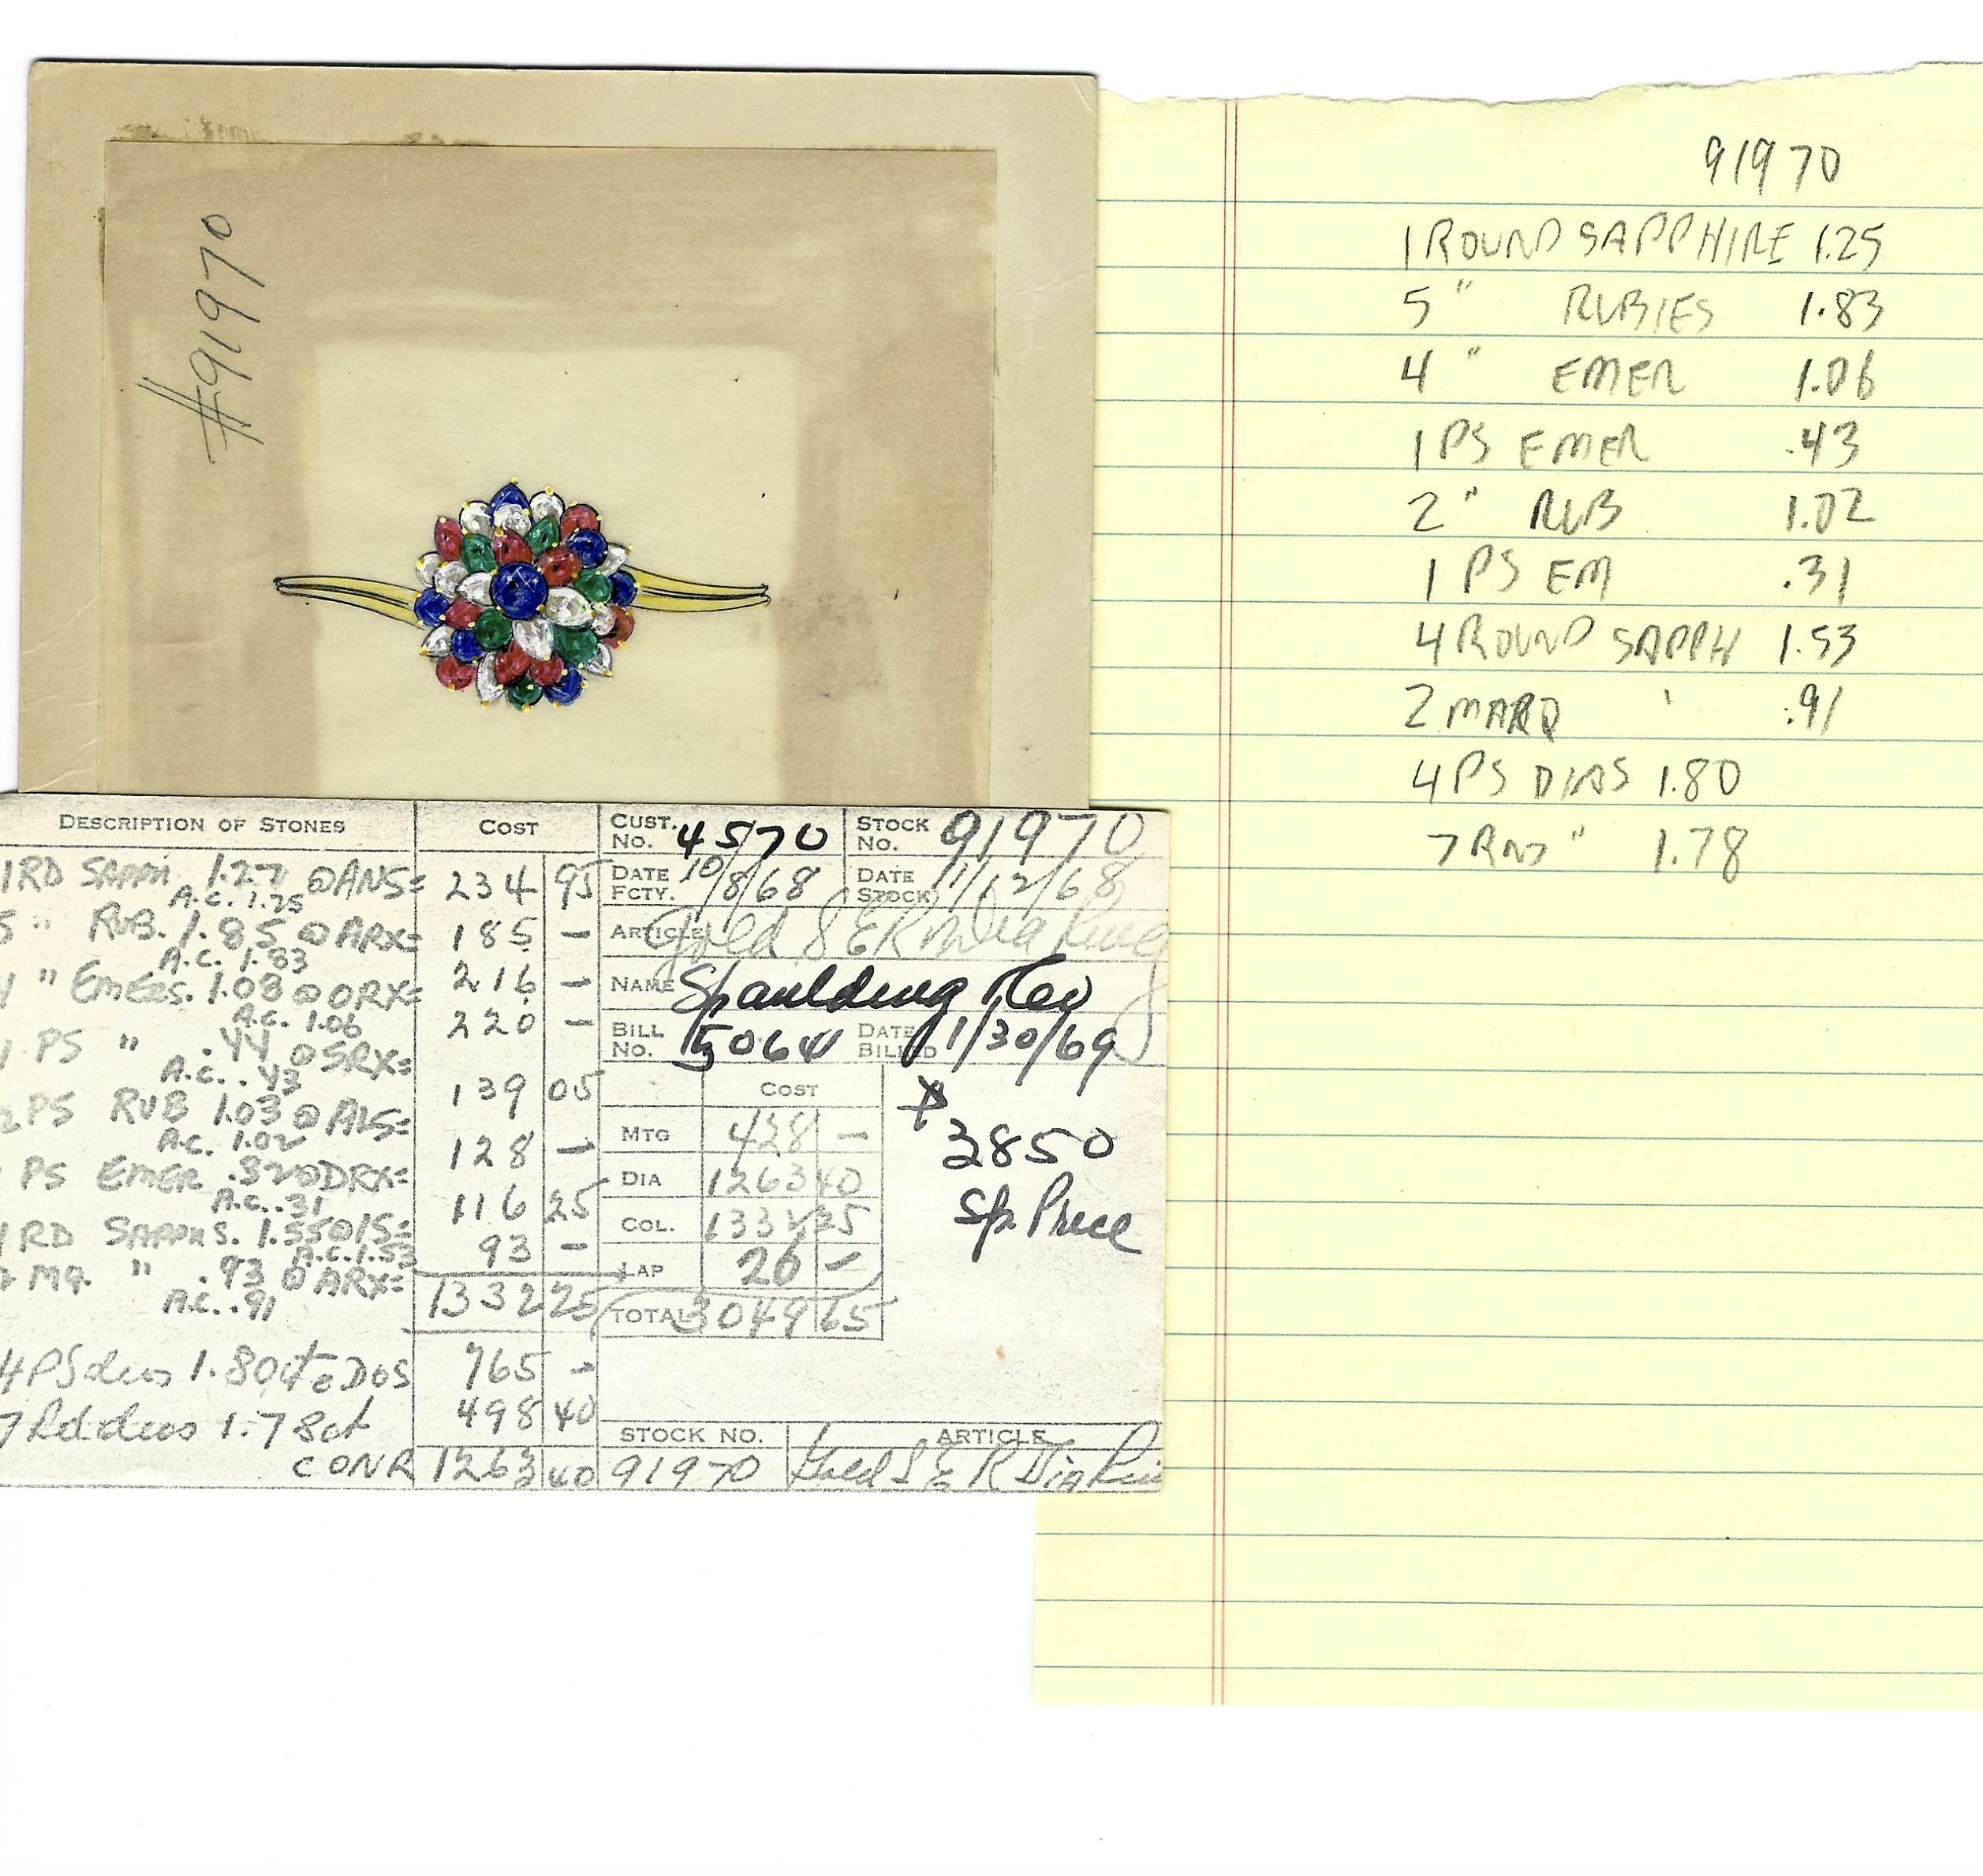 #91970
91970
1 ROUND SAPPHIRE 1.25
5 " RUBIES 1.83
4 " EMER 1.06
1 PS EMER .43
2 " RUB 1.02
1 PS EM .31
4 ROUND SAPPH 1.53
2 MARQ ' .91
4 PS DIAS 1.80
7 RND " 1.78
DESCRIPTION OF STONES COST
1RD SAPPH 1.27 @ANS= 234 95
A.C. 1.25
5 " RUB. 1.85 @ ARX= 185 —
A.C. 1.83
" EMERS. 1.08 @ ORX= 216 —
A.C. 1.06
PS " .44 @SRX= 220 —
A.C. .43
2 PS RUB 1.03 @ALS= 139 05
A.C. 1.02
PS EMER .32 @DRX= 128 —
A.C. .31
RD SAPPHS. 1.55@IS= 116 25
A.C. 1.53
MQ. " .93 @ ARX= 93 —
A.C. .91
1332 25
4 PS dias 1.80ct @ DOS 765 —
7 Rd dias 1.78ct 498 40
CONR 1263 40
CUST. NO. 4570 STOCK NO. 91970
DATE FCTY. 10/8/68 DATE STOCK 11/12/68
ARTICLE Gold S E R Dia Ring
NAME Spaulding
BILL NO. 15064 DATE BILLED 1/30/69
COST
MTG 428 —
DIA 1263 40
COL. 1332 25
LAP 26 —
TOTAL 3049 65
3850
Sp. Price
STOCK NO. ARTICLE
91970 Gold S E R Dia Rin